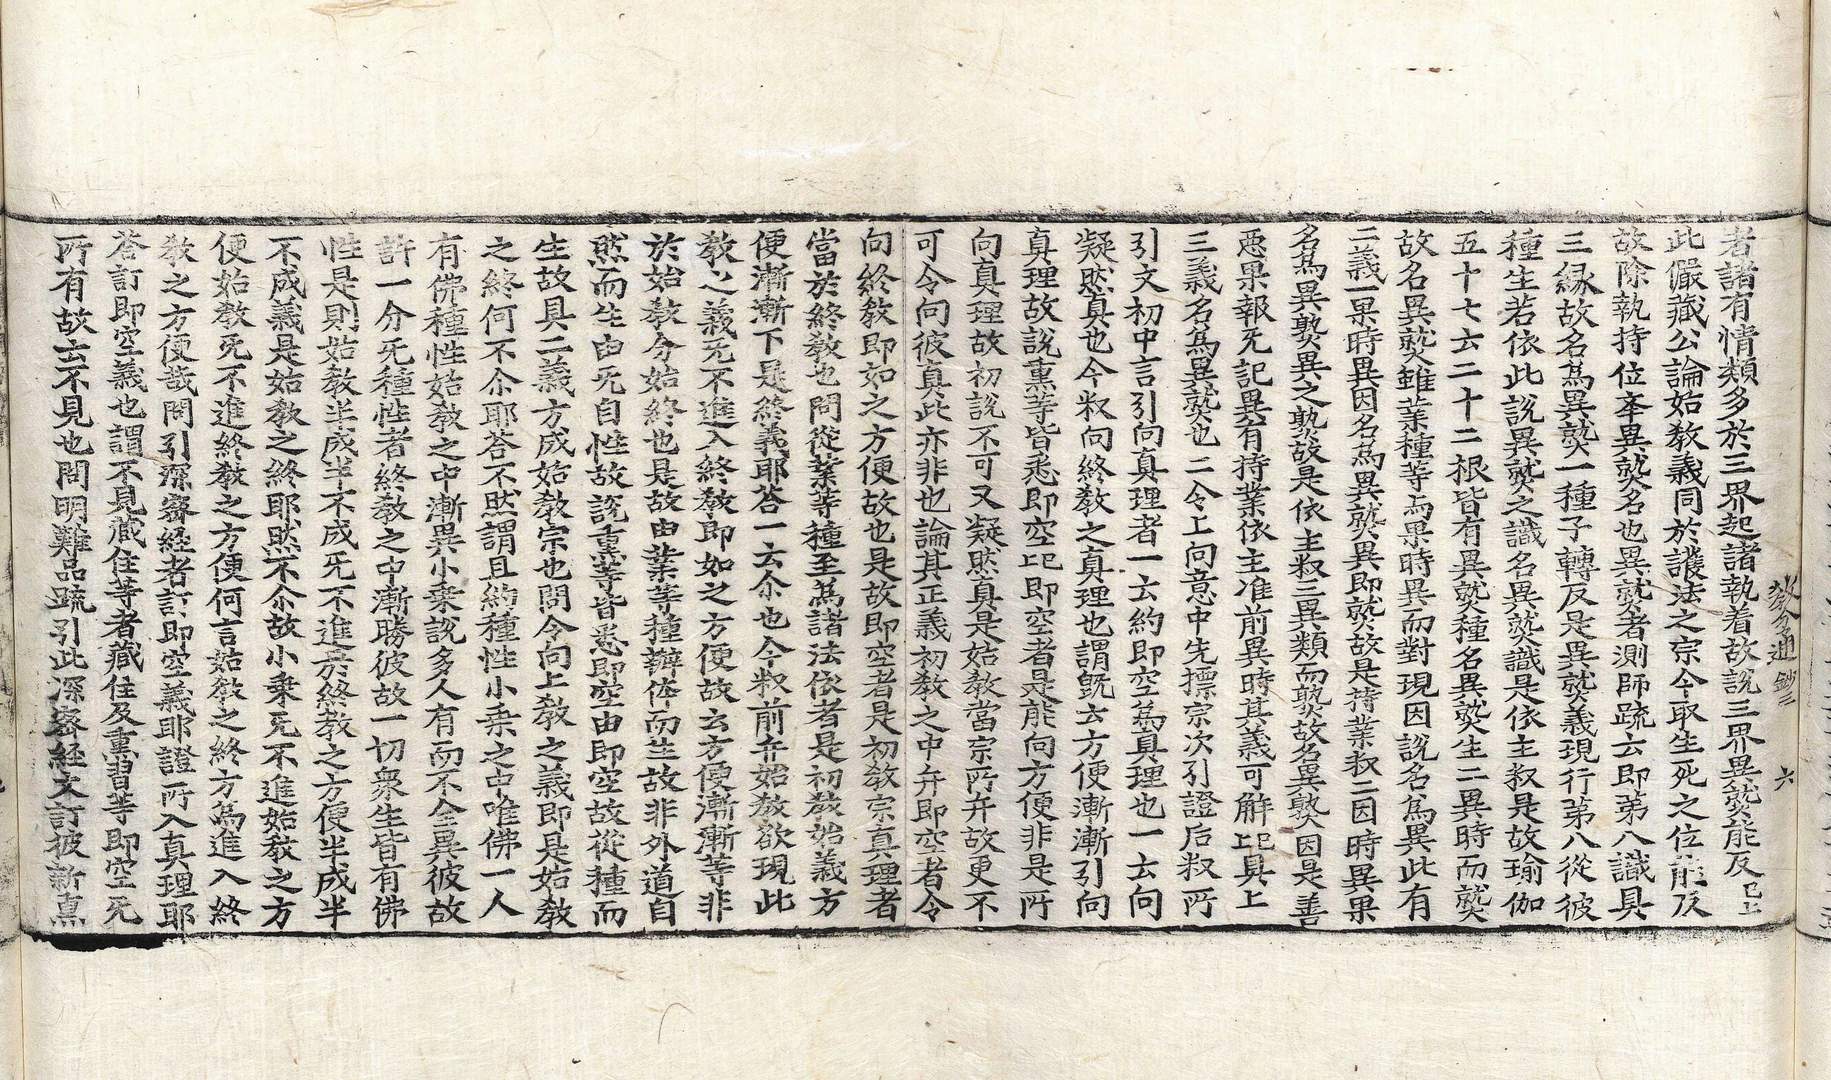 教分通鈔三　六
者諸有情類多於三界起諸執着故說三界異熟能及已上
此儼藏公論始教義同於護法之宗今取生死之位能及
故除執持位夲異熟名也異熟者測師䟽云即苐八識具
三縁故名為異熟一種子轉反是異熟義現行苐八從彼
種生若依此說異熟之識名異熟識是依主叔是故瑜伽
五十七六二十二根皆有異熟種名異熟生二異時而熟
故名異熟雖業種等与果時異而對現因說名為異此有
二義一果時異因名為異熟異即熟故是持業叔二因時異果
名為異熟異之熟故是依主叔三異類而熟故名異熟因是善
惡果報无記異有持業依主准前異時其義可解上具上
三義名為異熟也二令上向意中先摽宗次引證后叔所
引文初中言引向真理者一云約即空為真理也一云向
凝然真也今叔向終教之真理也謂旣云方便漸漸引向
真理故說熏等皆悉即空上即空者是能向方便非是所
向真理故初說不可又凝然真是始教當宗所弁故更不
可令向彼真此亦非也論其正義初教之中弁即空者令
向終教即如之方便故也是故即空者是初教宗真理者
當於終教也問從業等種至為諸法依者是初教始義方
便漸漸下是終義耶荅一云尒也今叔前弁始教欲現此
教之義无不進入終教即如之方便故云方便漸漸等非
於始教分始終也是故由業等種辦体而生故非外道自
然而生由无自性故說熏等皆悉即空由即空故從種而
生故具二義方成始教宗也問令向上教之義即是始教
之終何不尒耶荅不然謂且約種性小乗之中唯佛一人
有佛種性始教之中漸異小乗說多人有而不全異彼故
許一分无種性者終教之中漸勝彼故一切衆生皆有佛
性是則始教半成半不成无不進於終教之方便半成半
不成義是始教之終耶然不尒故小乗无不進始教之方
便始教无不進終教之方便何言始教之終方為進入終
教之方便哉問引深密経者訂即空義耶證所入真理耶
荅訂即空義也謂不見藏住等者藏住及熏習等即空无
所有故云不見也問明難品䟽引此深密経文訂彼新熏